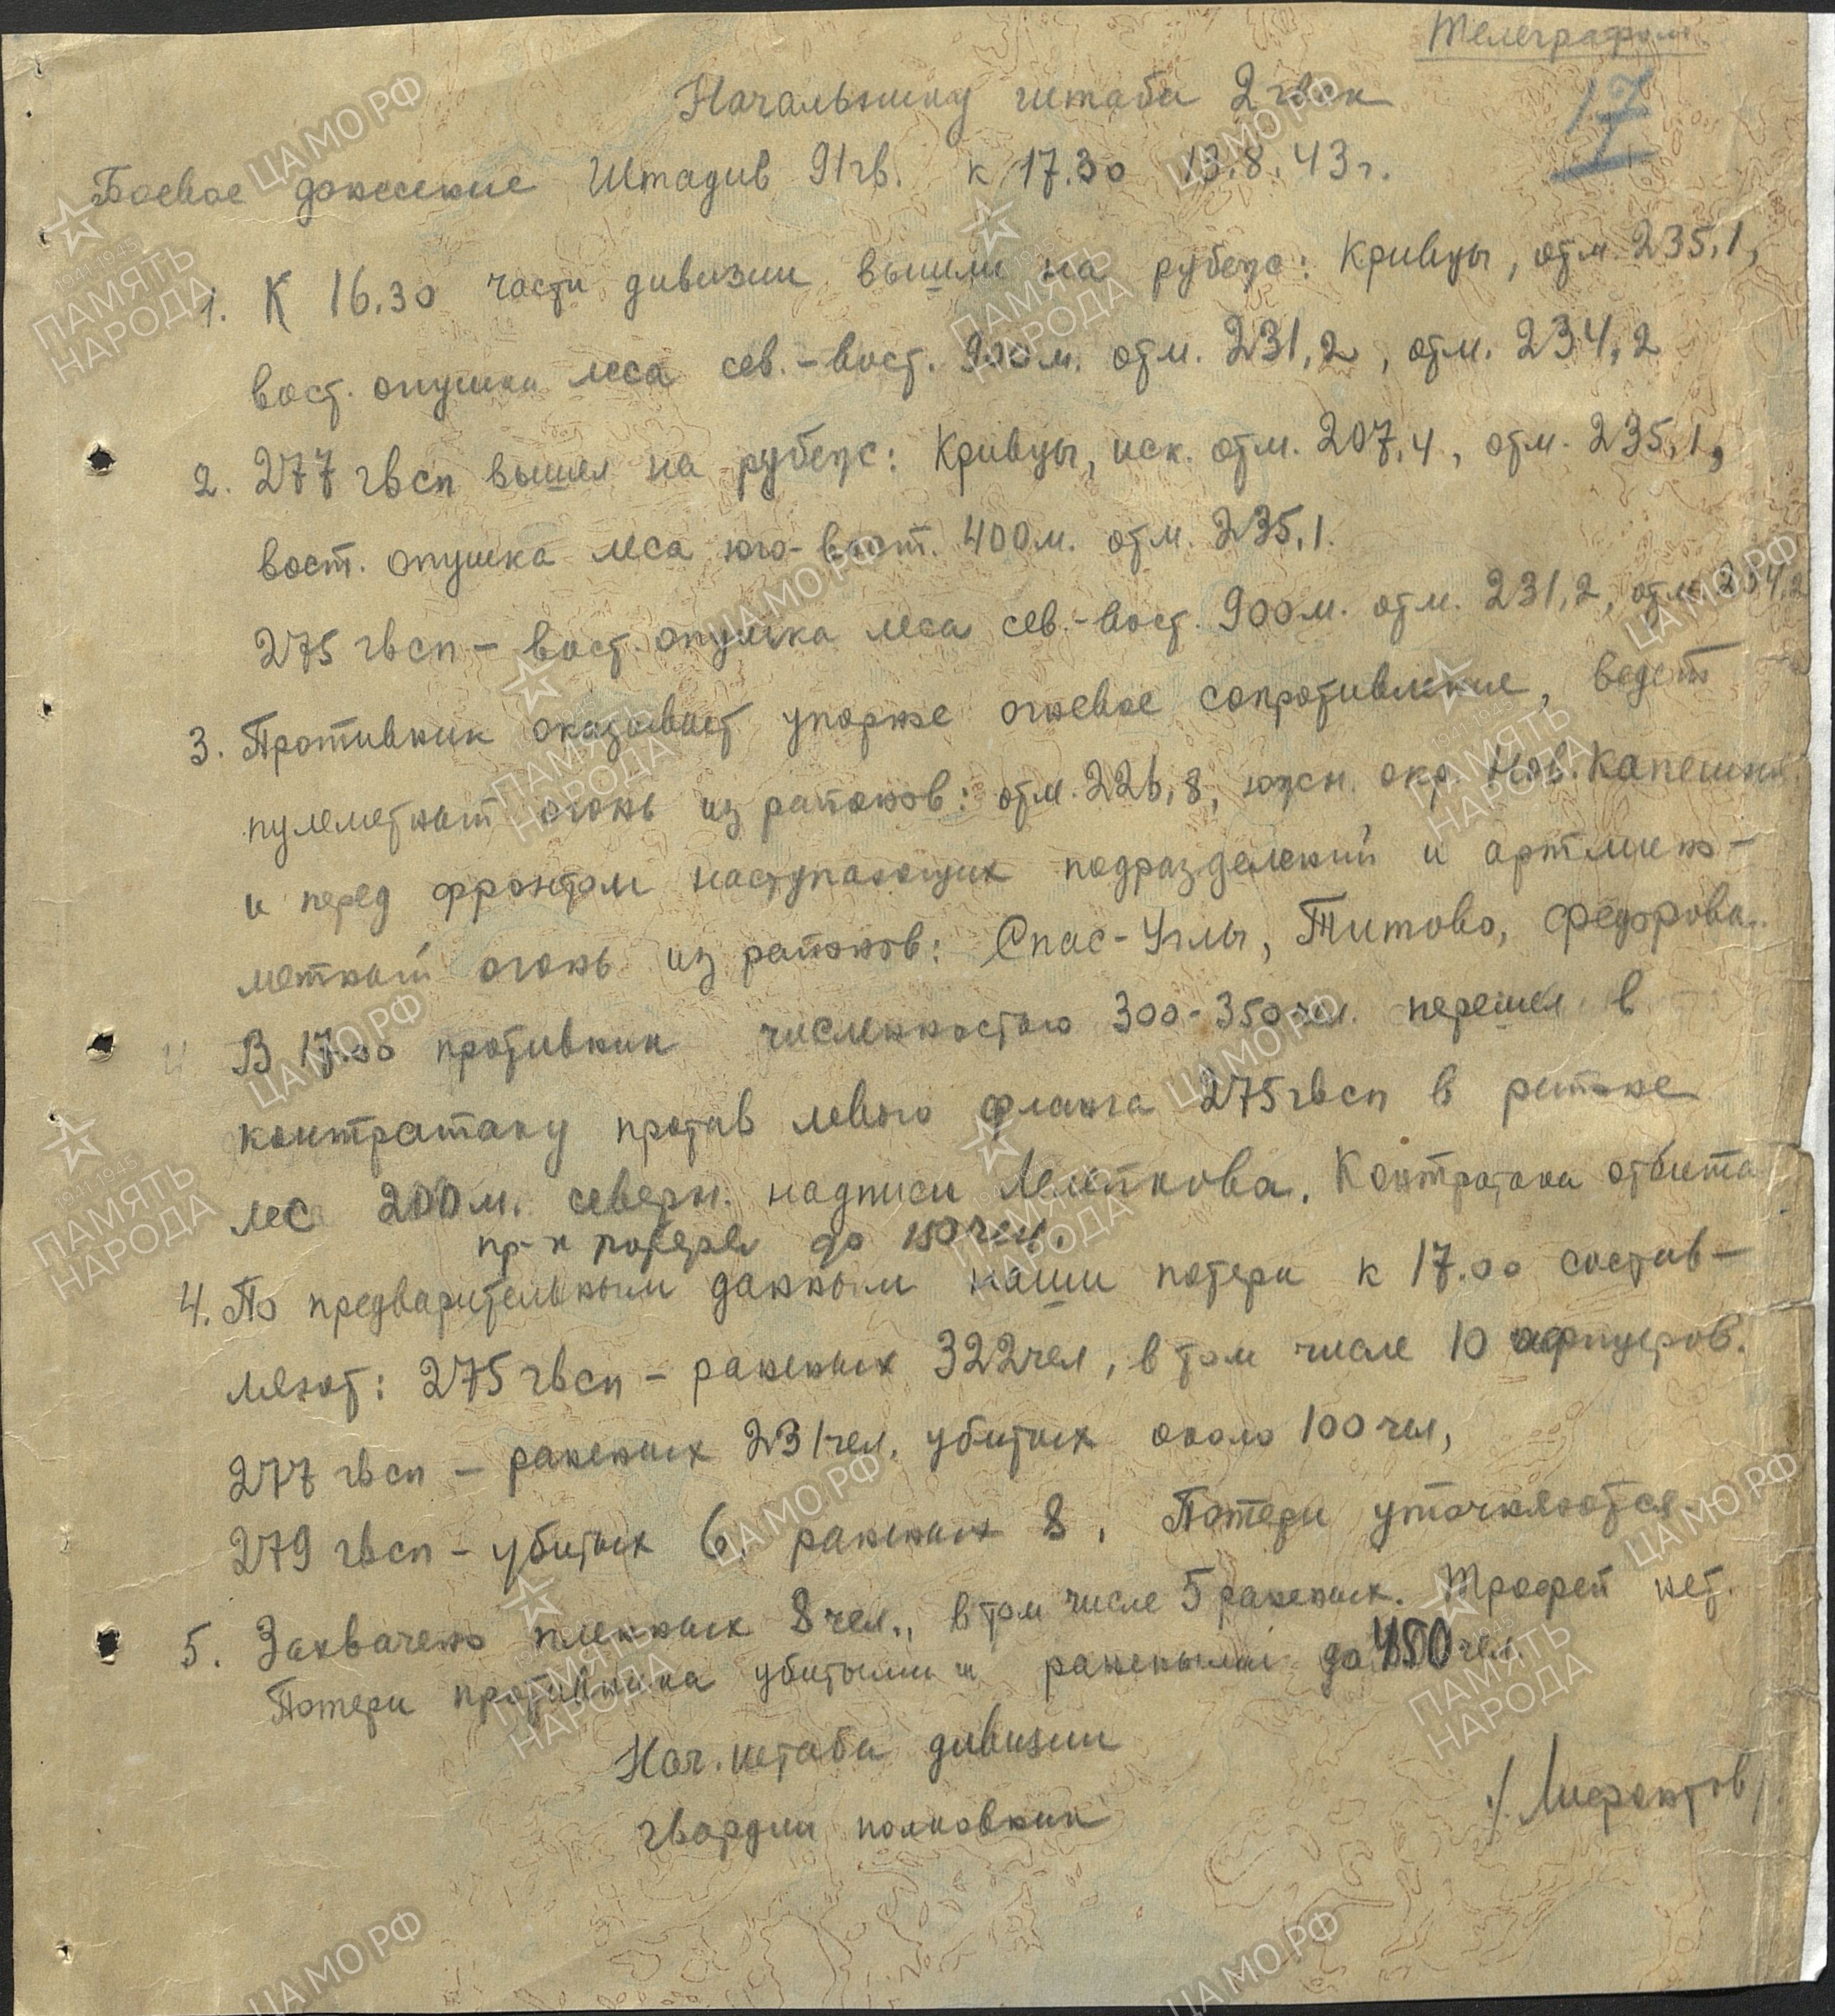 Телеграфом
17
Начальнику штаба 2 гвск
Боевое донесение Штадив 91 гв. к 17.30 13.8.43 г.
1. К 16.30 части дивизии вышли на рубеж: Кривцы, отм. 235,1,
вост. опушка леса сев.-вост. 900 м. отм. 231,2, отм. 234,2
2. 277 гвсп вышел на рубеж: Кривцы, иск. отм. 207,4, отм. 235,1,
вост. опушка леса юго-вост. 400 м. отм. 235,1.
275 гвсп – вост. опушка леса сев.-вост. 900 м. отм. 231,2, отм. 234,2
3. Противник оказывает упорное огневое сопротивление, ведет
пулеметный огонь из районов: отм. 226,8, южн. окр. Нов.
и перед фронтом наступающих подразделений и артмино-
метный огонь из районов: Спас-Углы, Титово, Федорова.
В 17.00 противник численностью 300-350 чел. перешел в
контратаку против левого фланга 275 гвсп в районе
лес 200 м. северн. надписи Контратака отбита
пр-к потерял до 150 чел.
4. По предварительным данным наши потери к 17.00 состав-
ляют: 275 гвсп – раненых 322 чел, в том числе 10 офицеров.
277 гвсп – раненых 231 чел. убитых около 100 чел,
279 гвсп – убитых 6, раненых 8. Потери уточняются.
5. Захвачено пленных 8 чел., в том числе 5 раненых. Трофей нет.
Потери противника убитыми и ранеными до 450 чел.
Нач. штаба дивизии
гвардии полковник /Лифантов/
ЦАМО РФ
1941-1945
ПАМЯТЬ
НАРОДА